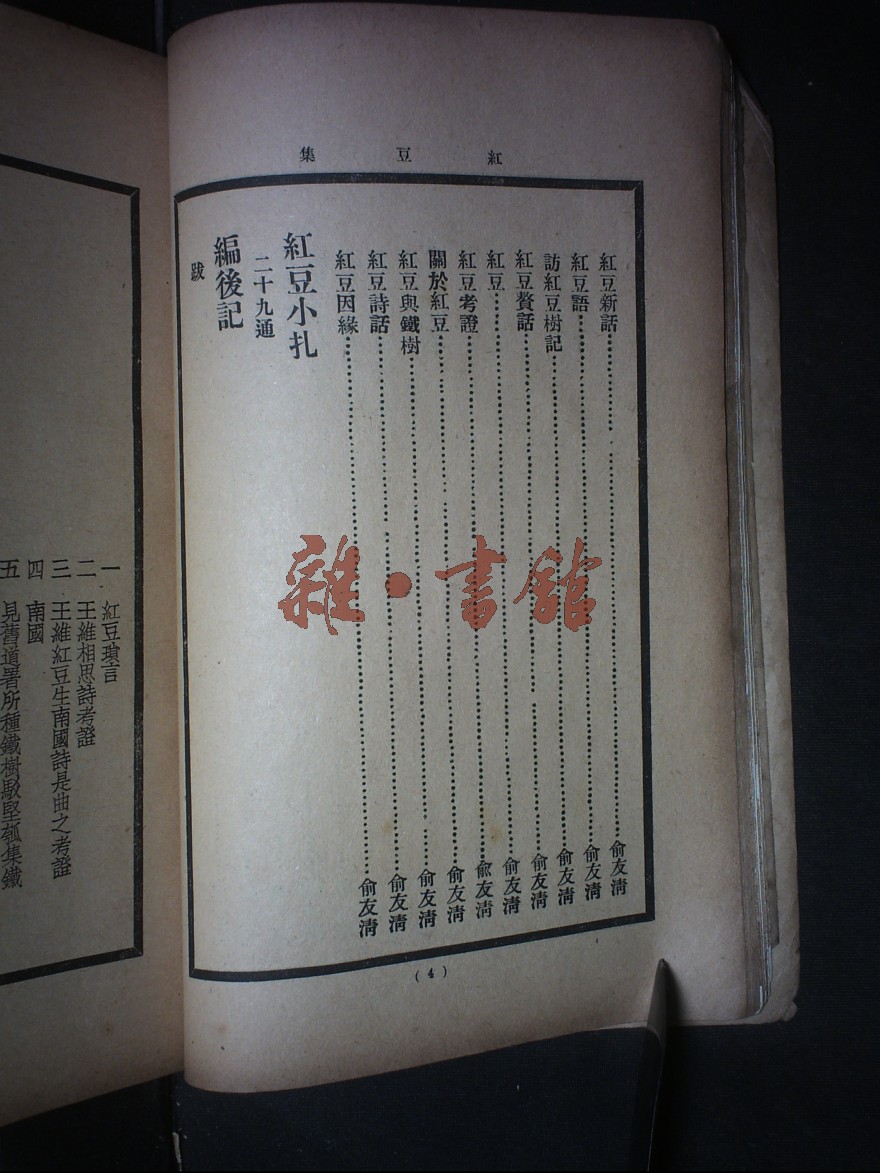 紅豆集
紅豆新話……俞友清
紅豆語……俞友清
訪紅豆樹記……俞友清
紅豆贅話……俞友清
紅豆……俞友清
紅豆考證……俞友清
關於紅豆……俞友清
紅豆與鐵樹……俞友清
紅豆詩話……俞友清
紅豆因緣……俞友清
紅豆小扎
二十九通
編後記
跋
(4)
一 紅豆瑣言
二 王維相思詩考證
三 王維紅豆生南國詩是曲之考證
四 南國
五 見舊道署所種鐵樹駁堅瓠集鐵
雜·書館